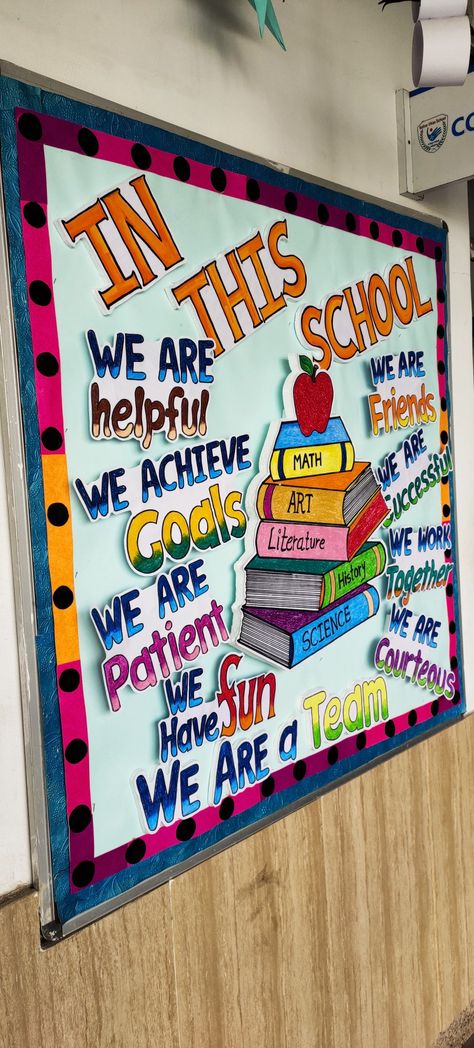 IN
THIS
SCHOOL
WE ARE
helpful
WE ACHIEVE
Goals
WE ARE
Patient
WE
Have fun
WE ARE a Team
WE ARE
Friends
WE ARE
Successful
WE WORK
Together
WE ARE
Courteous
MATH
ART
Literature
History
SCIENCE
CO